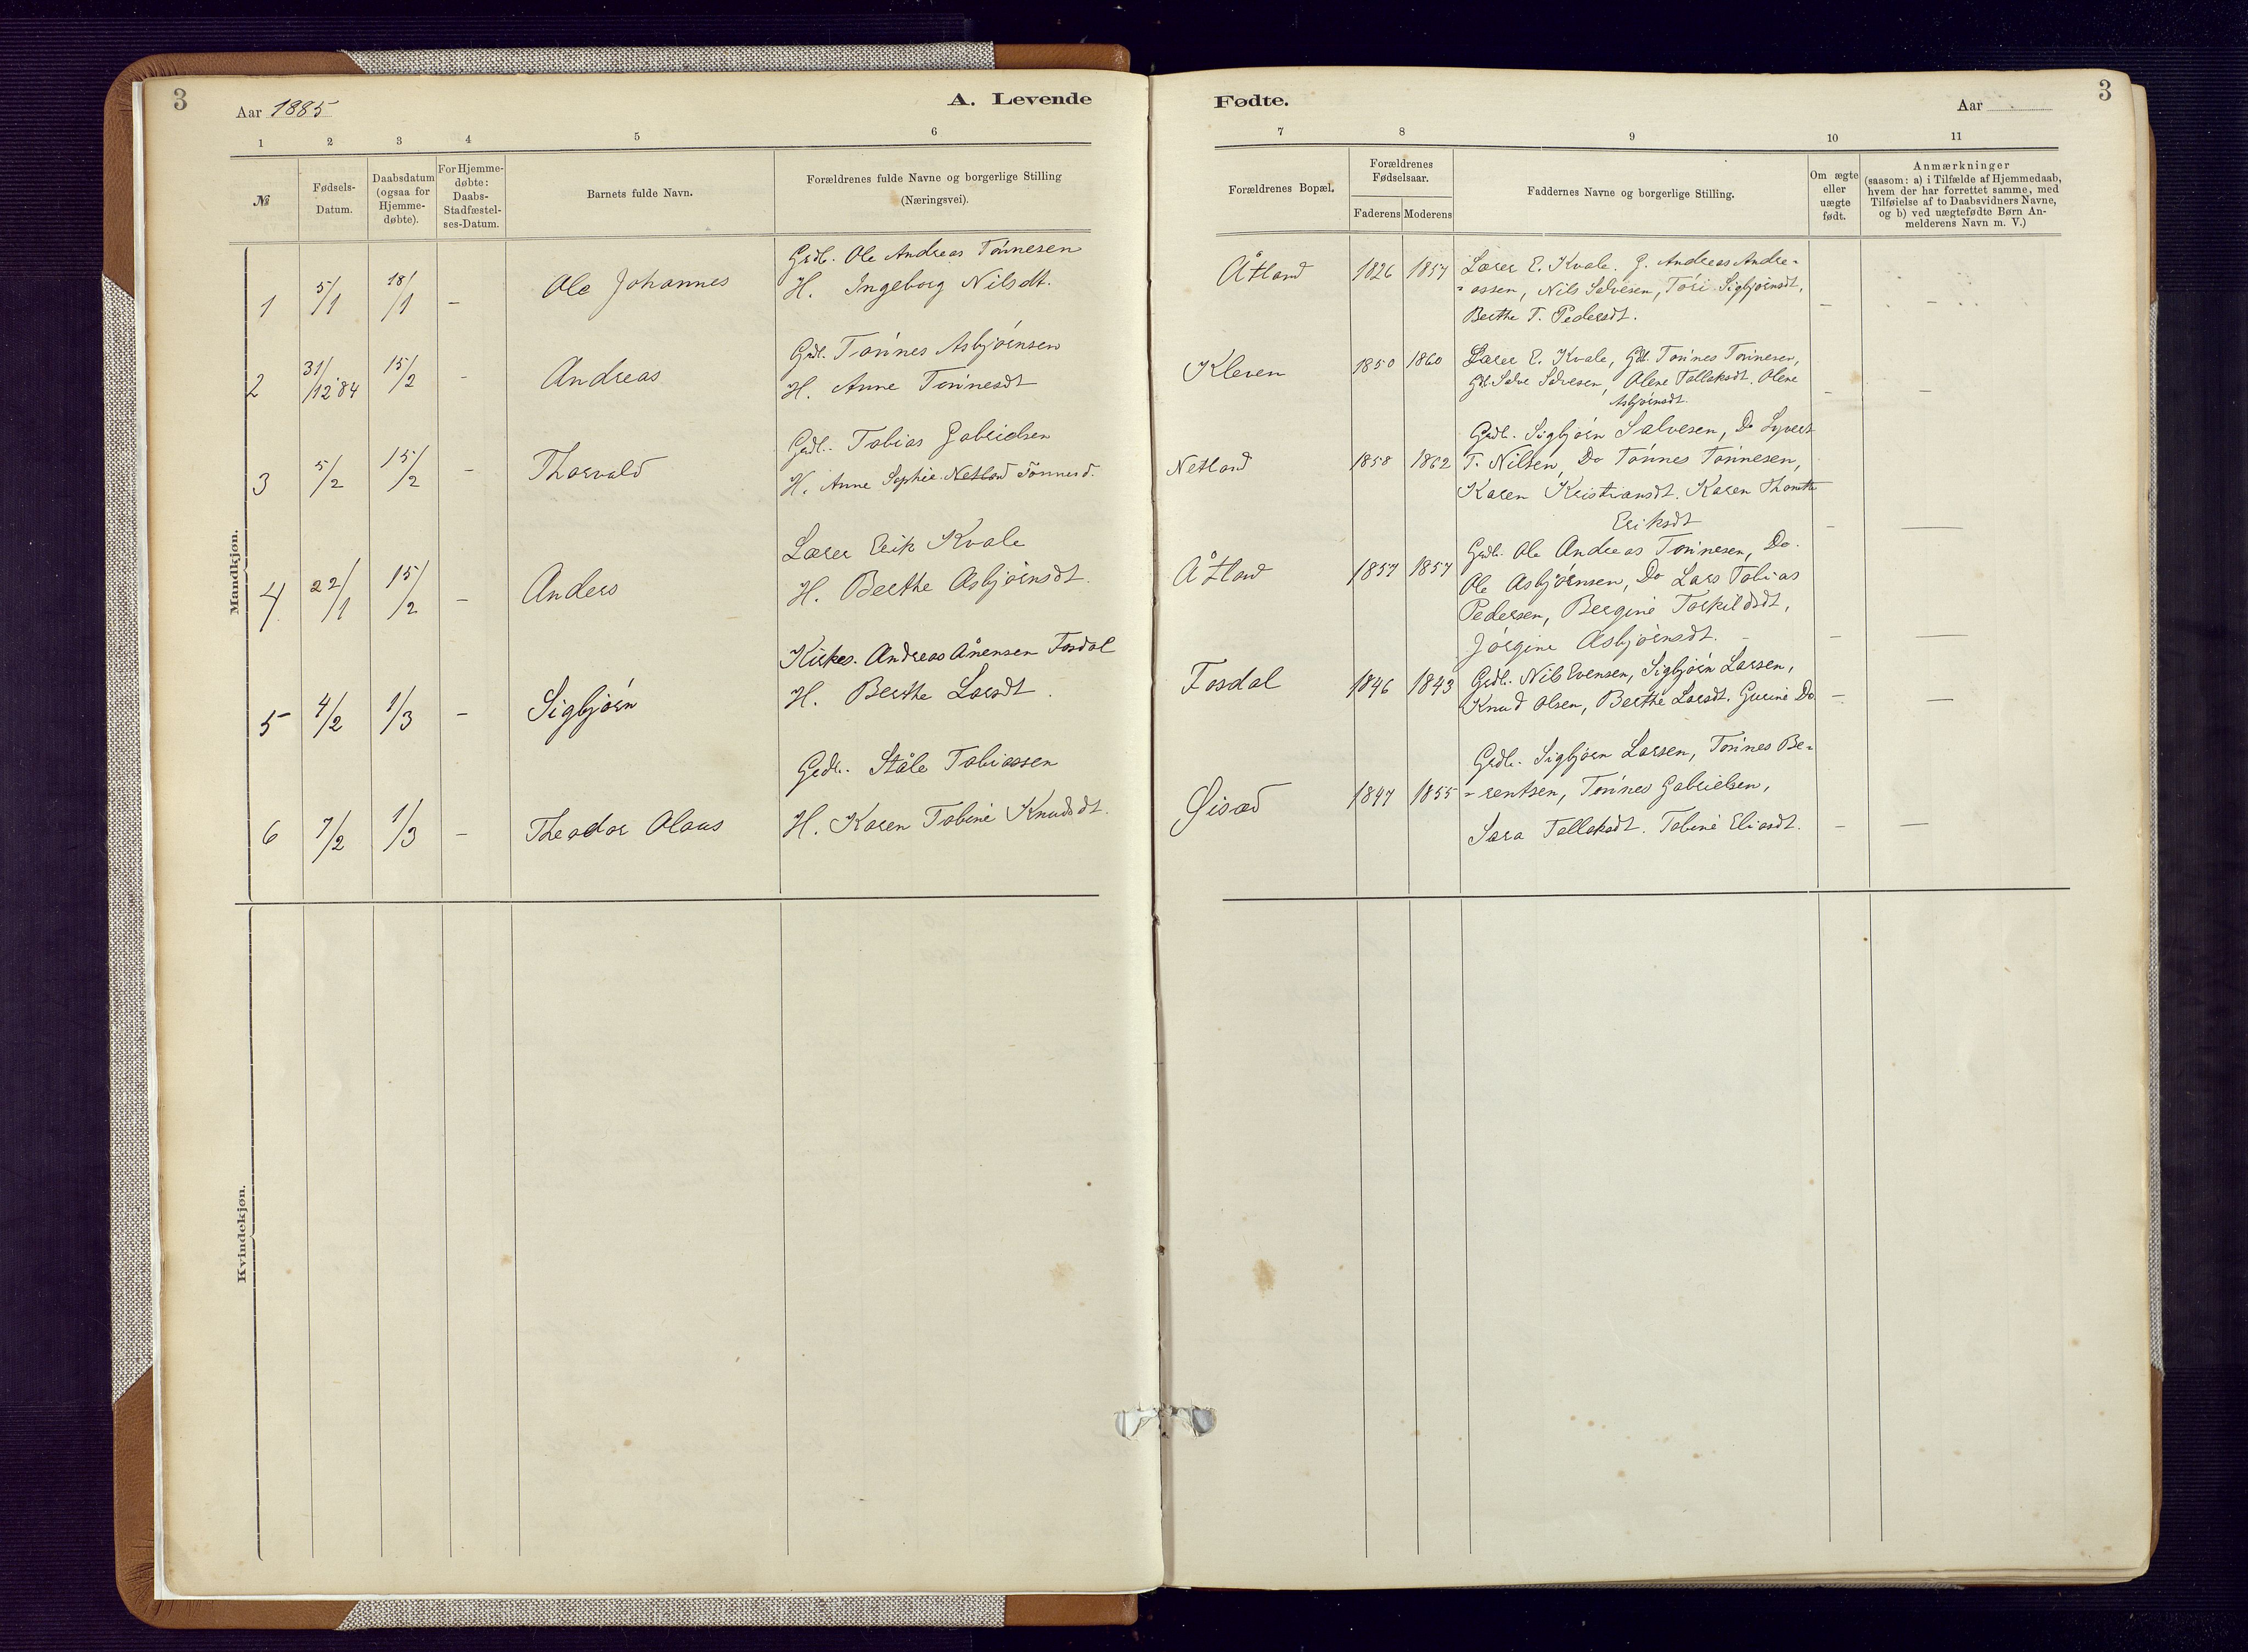 3
Aar 1885
A. Levende
1 2 3 4 5 6
№
Fødsels-
Datum.
Daabsdatum
(ogsaa for
Hjemme-
døbte).
For Hjemme-
døbte:
Daabs-
Stadfæstel-
ses-Datum.
Barnets fulde Navn.
Forældrenes fulde Navne og borgerlige Stilling
(Næringsvei).
Mandkjøn.
Grdb. Ole Andreas Tønnesen
1 5/1 18/1 - Ole Johannes H. Ingeborg Nilsdt.
Grdb. Tønnes Asbjørnsen
2 31/12 84 15/2 - Andreas H. Anne Tønnesdt
Grdb. Tobias Gabrielsen
3 5/2 15/2 - Thorvald H. Anne Sophie Netland Tønnesd.
Lærer Erik Kvale
4 22/1 15/2 - Anders H. Berthe Asbjørnsdt.
Kirkes. Andreas Ånensen Fosdal
5 4/2 1/3 - Sigbjørn H. Berthe Larsdt.
Grdb. Ståle Tobiassen
6 7/2 1/3 - Theodor Olaus H. Karen Tobine Knudsdt.
Kvindekjøn.
Fødte.
Aar
3
7 8 9 10 11
Forældrenes Bopæl.
Forældrenes
Fødselsaar.
Faderens Moderens
Faddernes Navne og borgerlige Stilling.
Om ægte
eller
uægte
født.
Anmærkninger
(saasom: a) i Tilfælde af Hjemmedaab,
hvem der har forrettet samme, med
Tilføielse af to Daabsvidners Navne,
og b) ved uægtefødte Børn An-
melderens Navn m. V.)
Åtland 1826 1857 Lærer E. Kvale. G. Andreas Andre-
= assen, Nils Salvesen, Tori Sigbjørnsdt,
Berthe T. Pedersdt. - -
Kleven 1850 1860 Lærer E. Kvale, Gdb. Tønnes Tønnesen,
Gdb. Salve Salvesen, Olene Tallaksdt. Olene
Asbjørnsdt. - -
Grdb. Sigbjørn Salvesen, Do Syvert
Netland 1858 1862 T. Nilsen, Do Tønnes Tønnesen,
Karen Kristiansdt. Karen Thomette
Eriksdt - -
Grdb. Ole Andreas Tønnesen, Do.
Åtland 1857 1857 Ole Asbjørnsen, Do Lars Tobias
Pedersen, Bergine Torkildsdt,
Jørgine Asbjørnsdt. - - -
Fosdal 1846 1843 Grdb. Nils Evensen, Sigbjørn Larsen,
Knud Olsen, Berthe Larsdt. Gurine Do - -
Grdb. Sigbjørn Larsen, Tønnes Be-
Øisæd 1847 1855 = rentsen, Tønnes Gabrielsen,
Sara Tallaksdt. Tobine Eliasdt. - -